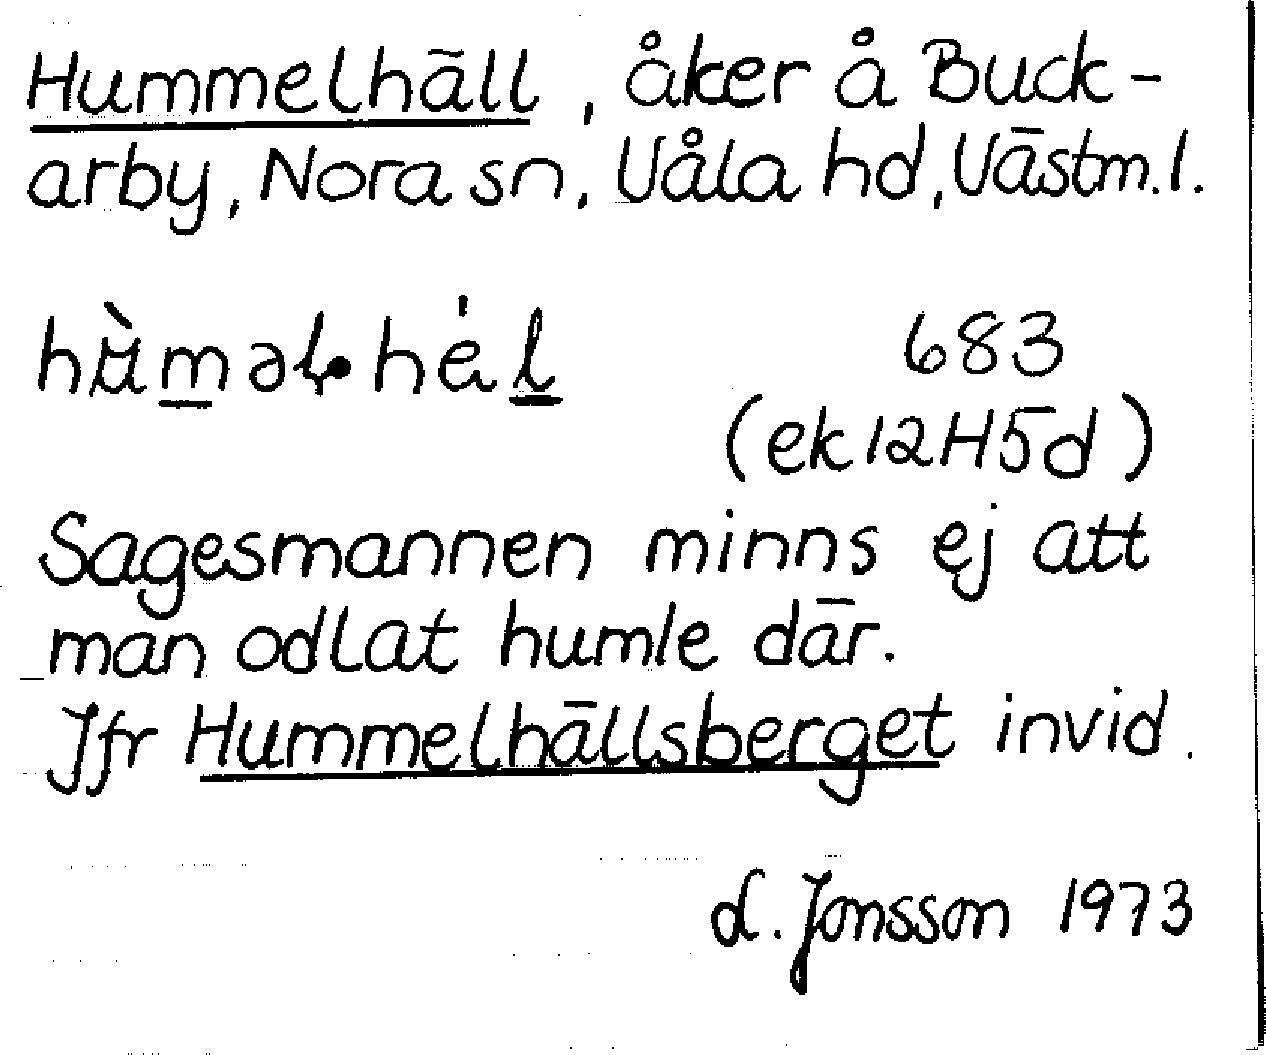 Hummelhäll, åker å Buck-
arby, Nora sn, Våla hd, Västm.l.
683
(ek 12H5d)
Sagesmannen minns ej att
man odlat humle där.
Jfr Hummelhällsberget invid.
L. Jonsson 1973